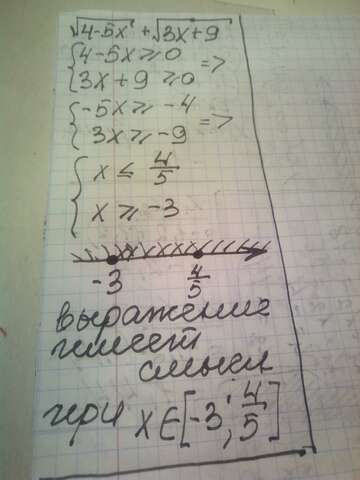 √4-5x + √3x+9
{4-5x ≥ 0
{3x+9 ≥ 0 =>
{-5x ≥ -4
{3x ≥ -9 =>
{x ≤ 4/5
{x ≥ -3
-3 4/5
выражение
имеет
смысл
при x∈[-3; 4/5]